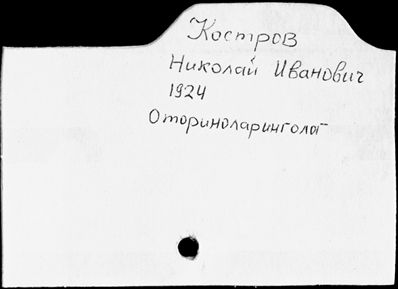 Костров
Николай Иванович
1924
Оториноларинголог